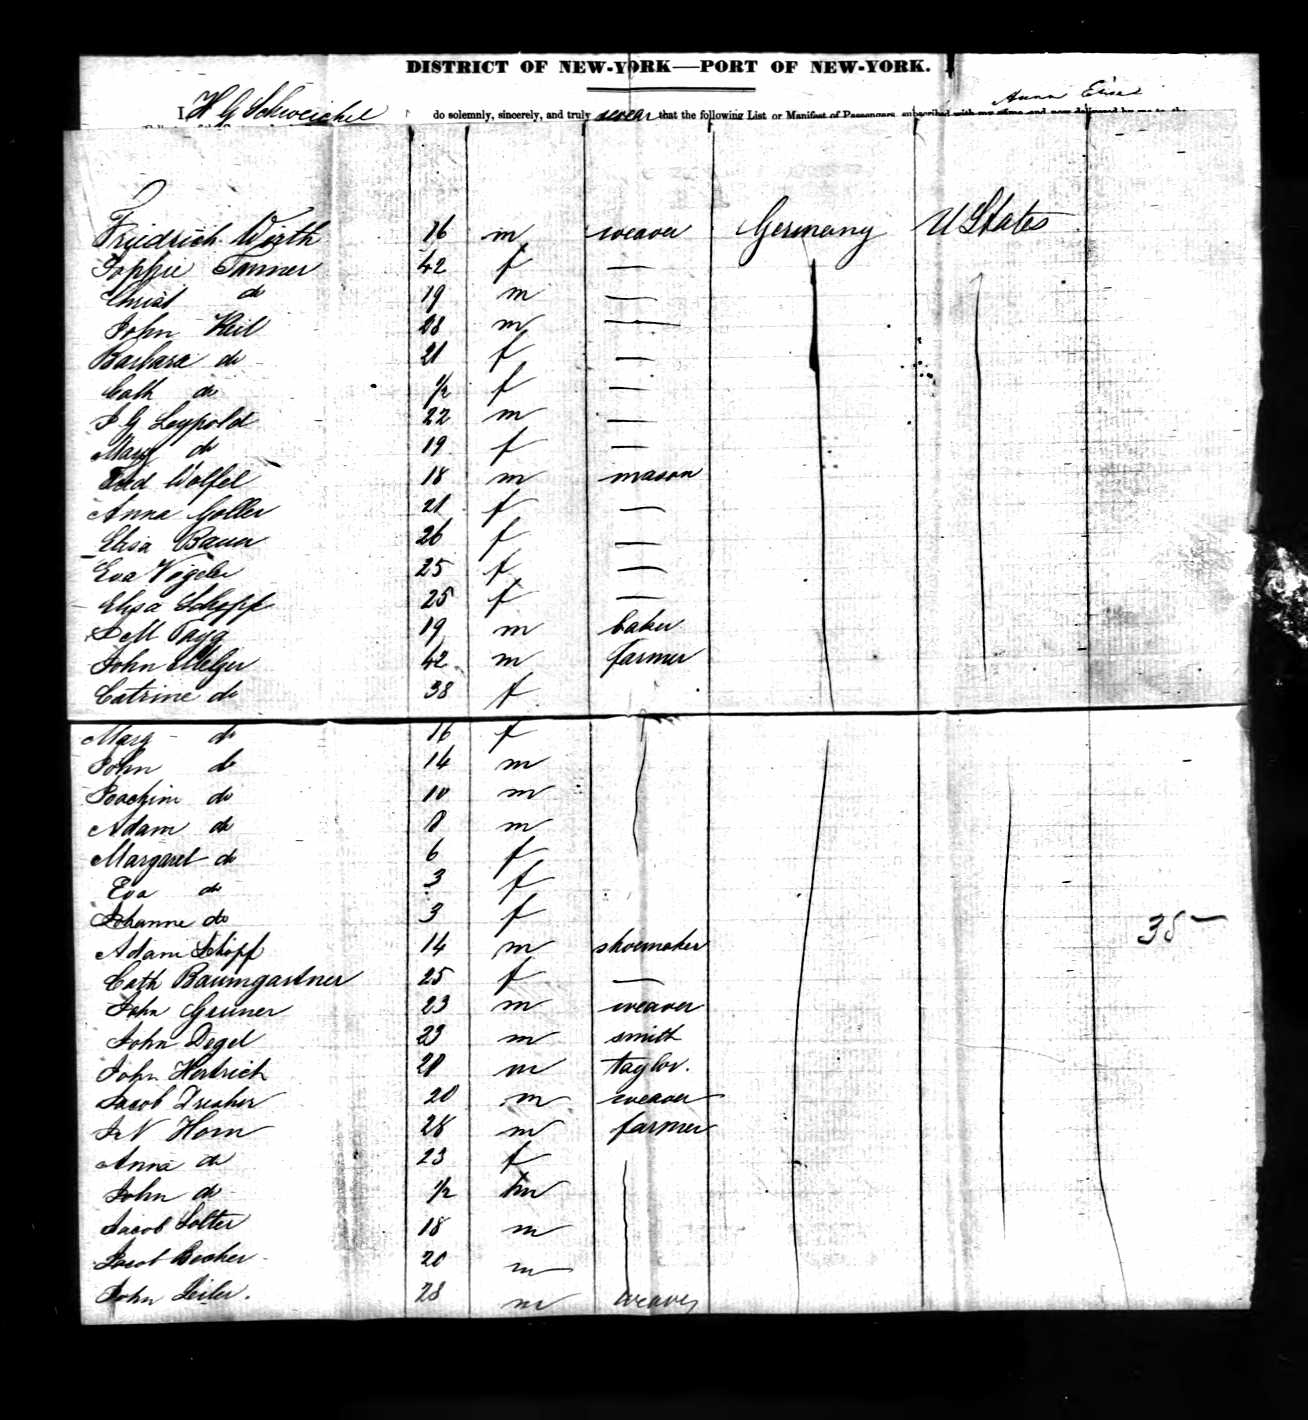 DISTRICT OF NEW-YORK—PORT OF NEW-YORK.
Anna Elise
I, H G Schweichel do solemnly, sincerely, and truly swear that the following List or Manifest of Passengers, subscribed with my name and now delivered by me to the
Friedrich Wirth 16 m weaver Germany U States
Sophie Tanner 42 f —
Christ do 19 m —
John Keil 28 m —
Barbara do 21 f —
Cath do 1/2 f —
J G Leypold 22 m —
Marg do 19 f —
Wolfel 18 m mason
Anna Goller 21 f —
Elisa Bauer 26 f —
Eva Vogeler 25 f —
Elisa Schopf 25 f —
19 m baker
John Melzer 42 m farmer
Catrine do 38 f
Marg do 16 f
John do 14 m
Joachim do 10 m
Adam do 8 m
Margaret do 6 f
Eva do 3 f
Johanne do 3 f
35—
Adam Schopf 14 m shoemaker
Cath Baumgartner 25 f —
John Gruner 23 m weaver
John Degel 23 m smith
John Hertrich 28 m taylor.
Jacob Drecher 20 m weaver
J N Horn 28 m farmer
Anna do 23 f
John do 1/2 m
Jacob Solter 18 m
Jacob Becher 20 m
John Seiler. 28 m weaver